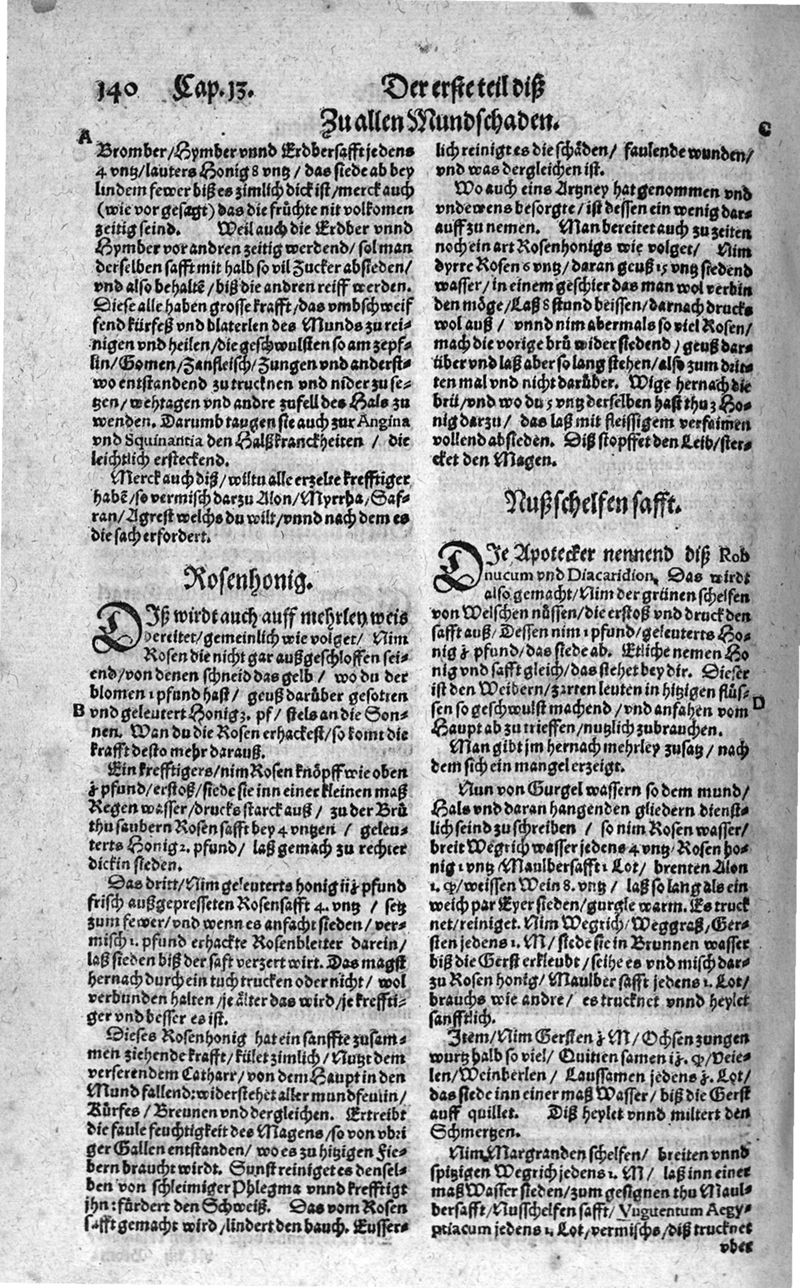 140 Cap. 13. Der erste teil diß
Zu allen Mundschaden.
A
Bromber/Hymber vnnd Erdbersafft jedens
4 vntz/lauters Honig 8 vntz/das siede ab bey
lindem fewer biß es zimlich dick ist/merck auch
(wie vor gesagt) das die früchte nit volkomen
zeitig seind. Weil auch die Erdber vnnd
Hymber vor andren zeitig werdend/sol man
derselben safft mit halb so vil Zucker absieden/
vnd also behaltē/biß die andren reiff werden.
Diese alle haben grosse krafft/das vmbschweif
fend kürfeß vnd blaterlen des Munds zu rei-
nigen vnd heilen/die geschwulsten so am zepf-
lin/Gomen/Zanfleisch/Zungen vnd anderst-
wo entstandend zu trucknen vnd nider zu se-
tzen/wehtagen vnd andre zufell des Hals zu
wenden. Darumb taugen sie auch zur Angina
vnd Squinantia den Halßkranckheiten/ die
leichtlich ersteckend.
Merck auch diß/wiltu alle erzelte krefftiger
habē/so vermisch darzu Alon/Myrrha/Saf-
ran/Agrest welchs du wilt/vnnd nach dem es
die sach erfordert.
Rosenhonig.
DIß wirdt auch auff mehrley weis
bereitet/gemeinlich wie volget/ Nim
Rosen die nicht gar außgeschloffen sei-
end/von denen schneid das gelb/ wo du der
blomen 1 pfund hast/ geuß darüber gesotten
B vnd geleutert Honig 2. pf/ stels an die Son-
nen. Wan du die Rosen erhackest/so komt die
krafft desto mehr darauß.
Ein krefftigers/nim Rosen knöpff wie oben
ʒ pfund/erstoß/siede sie inn einer kleinen maß
Regen wasser/drucks starck auß/ zu der Brü
thu saubern Rosen safft bey 4 vntzen/ geleu-
terts Honig 2. pfund/ laß gemach zu rechter
dick in sieden.
Das dritt/Nim geleuterts honig iiʒ pfund
frisch außgepresseten Rosensafft 4. vntz/ setz
zum fewer/vnd wenn es anfacht sieden/ ver-
misch 1. pfund erhackte Rosenbletter darein/
laß sieden biß der saft verzert wirt. Das magst
hernach durch ein tuch trucken oder nicht/ wol
verbunden halten/je älter das wird/je kreffti-
ger vnd besser es ist.
Dieses Rosenhonig hat ein sanffte zusam-
men ziehende krafft/kület zimlich/Nutzt dem
verserendem Catharr/von dem Haupt in den
Mund fallend: widerstehet aller mundfeulin/
Kürfes/Breunen vnd dergleichen. Ertreibt
die faule feuchtigkeit des Magens/so von vbri
ger Gallen entstanden/ wo es zu hitzigen Fie-
bern braucht wirdt. Sunst reiniget es densel-
ben von schleimiger Phlegma vnnd krefftigt
ihn: fürdert den Schweiß. Das vom Rosen
safft gemacht wird/lindert den bauch. Eusser-
C
lich reinigt es die schäden/ faulende wunden/
vnd was dergleichen ist.
Wo auch eins Artzney hat genommen vnd
vndewens besorgte/ist dessen ein wenig dar-
auff zu nemen. Man bereitet auch zu zeiten
noch ein art Rosenhonigs wie volget/ Nim
dyrre Rosen 6 vntz/daran geuß 15 vntz siedend
wasser/in einem geschier das man wol verbin
den möge/Laß 8 stund beissen/darnach drucks
wol auß/ vnnd nim abermals so viel Rosen/
mach die vorige brü wider siedend/geuß dar-
über vnd laß aber so lang stehen/also zum drit-
ten mal vnd nicht darüber. Wige hernach die
brü/vnd wo du 5 vntz derselben hast thu 3 Ho-
nig darzu/ das laß mit fleissigem verfaimen
vollend absieden. Diß stopffet den Leib/ster-
cket den Magen.
Nußschelfen safft.
DIe Apotecker nennend diß Rob
nucum vnd Diacaridion. Das wirdt
also gemacht/Nim der grünen schelfen
von Welschen nüssen/die erstoß vnd druck den
safft auß/Dessen nim 1 pfund/geleuterts Ho-
nig ʒ pfund/das siede ab. Etliche nemen Ho
nig vnd safft gleich/das stehet bey dir. Dieser
ist den Weibern/zarten leuten in hitzigen flüs-
sen so geschwulst machend/vnd anfahen vom D
Haupt ab zu trieffen/nutzlich zubrauchen.
Man gibt jm hernach mehrley zusatz/ nach
dem sich ein mangel erzeigt.
Nun von Gurgel wassern so dem mund/
Hals vnd daran hangenden gliedern dienst-
lich seind zu schreiben/ so nim Rosen wasser/
breit Wegrich wasser jedens 4 vntz/Rosen ho-
nig 1 vntz/Maulbersafft 1 Lot/ brenten Alon
1. q/weissen Wein 8. vntz/ laß so lang als ein
weich par Eyer sieden/gurgle warm. Es truck
net/reiniget. Nim Wegrich/Weggraß/Ger-
sten jedens 1. M/siede sie in Brunnen wasser
biß die Gerst erkleubt/seihe es vnd misch dar-
zu Rosen honig/Maulber safft jedens 1. Lot/
brauchs wie andre/ es trucknet vnnd heylet
sanfftlich.
Item/Nim Gersten ʒ M/Ochsen zungen
wurtz halb so viel/ Quitten samen iʒ. q/Veie-
len/Weinberlen/ Laussamen jedens ʒ. Lot/
das siede inn einer maß Wasser/ biß die Gerst
auff quillet. Diß heylet vnnd miltert den
Schmertzen.
Nim Margranden schelfen/ breiten vnnd
spitzigen Wegrich jedens 1. M/ laß inn einer
maß Wasser sieden/zum gesignen thu Maul-
bersafft/Nusschelfen safft/Vnguentum Aegy-
ptiacum jedens 1. Lot/vermischs/diß trucknet
vber